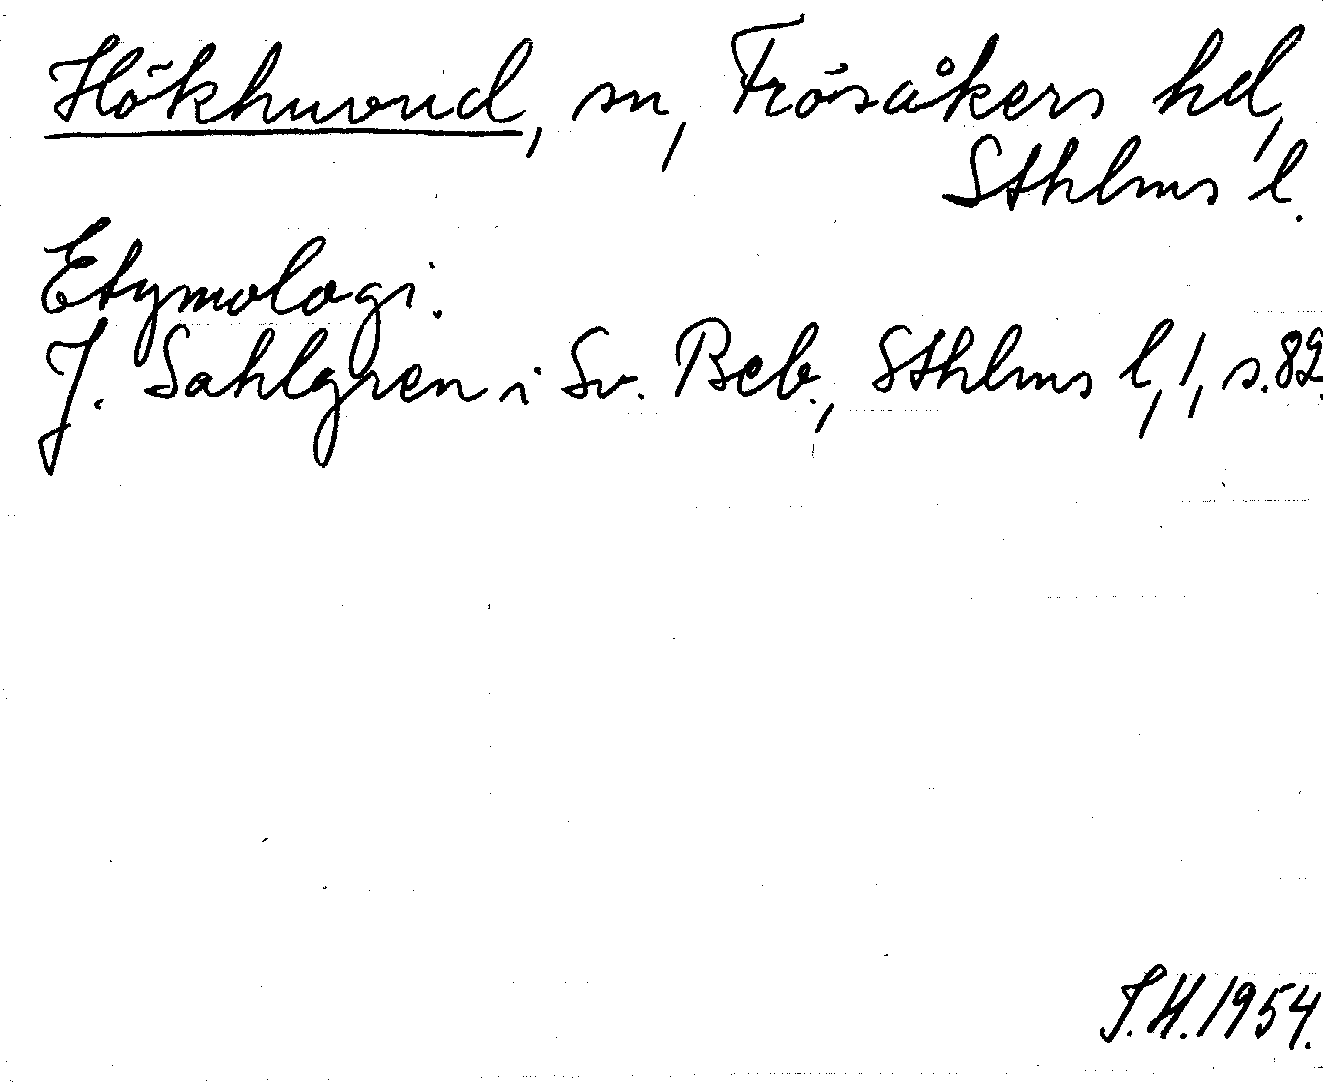 Hökhuvud, sn, Frösåkers hd,
Sthlms l.
Etymologi.
J. Sahlgren i Sv. Beb., Sthlms l, 1, s. 82.
S.H. 1954.